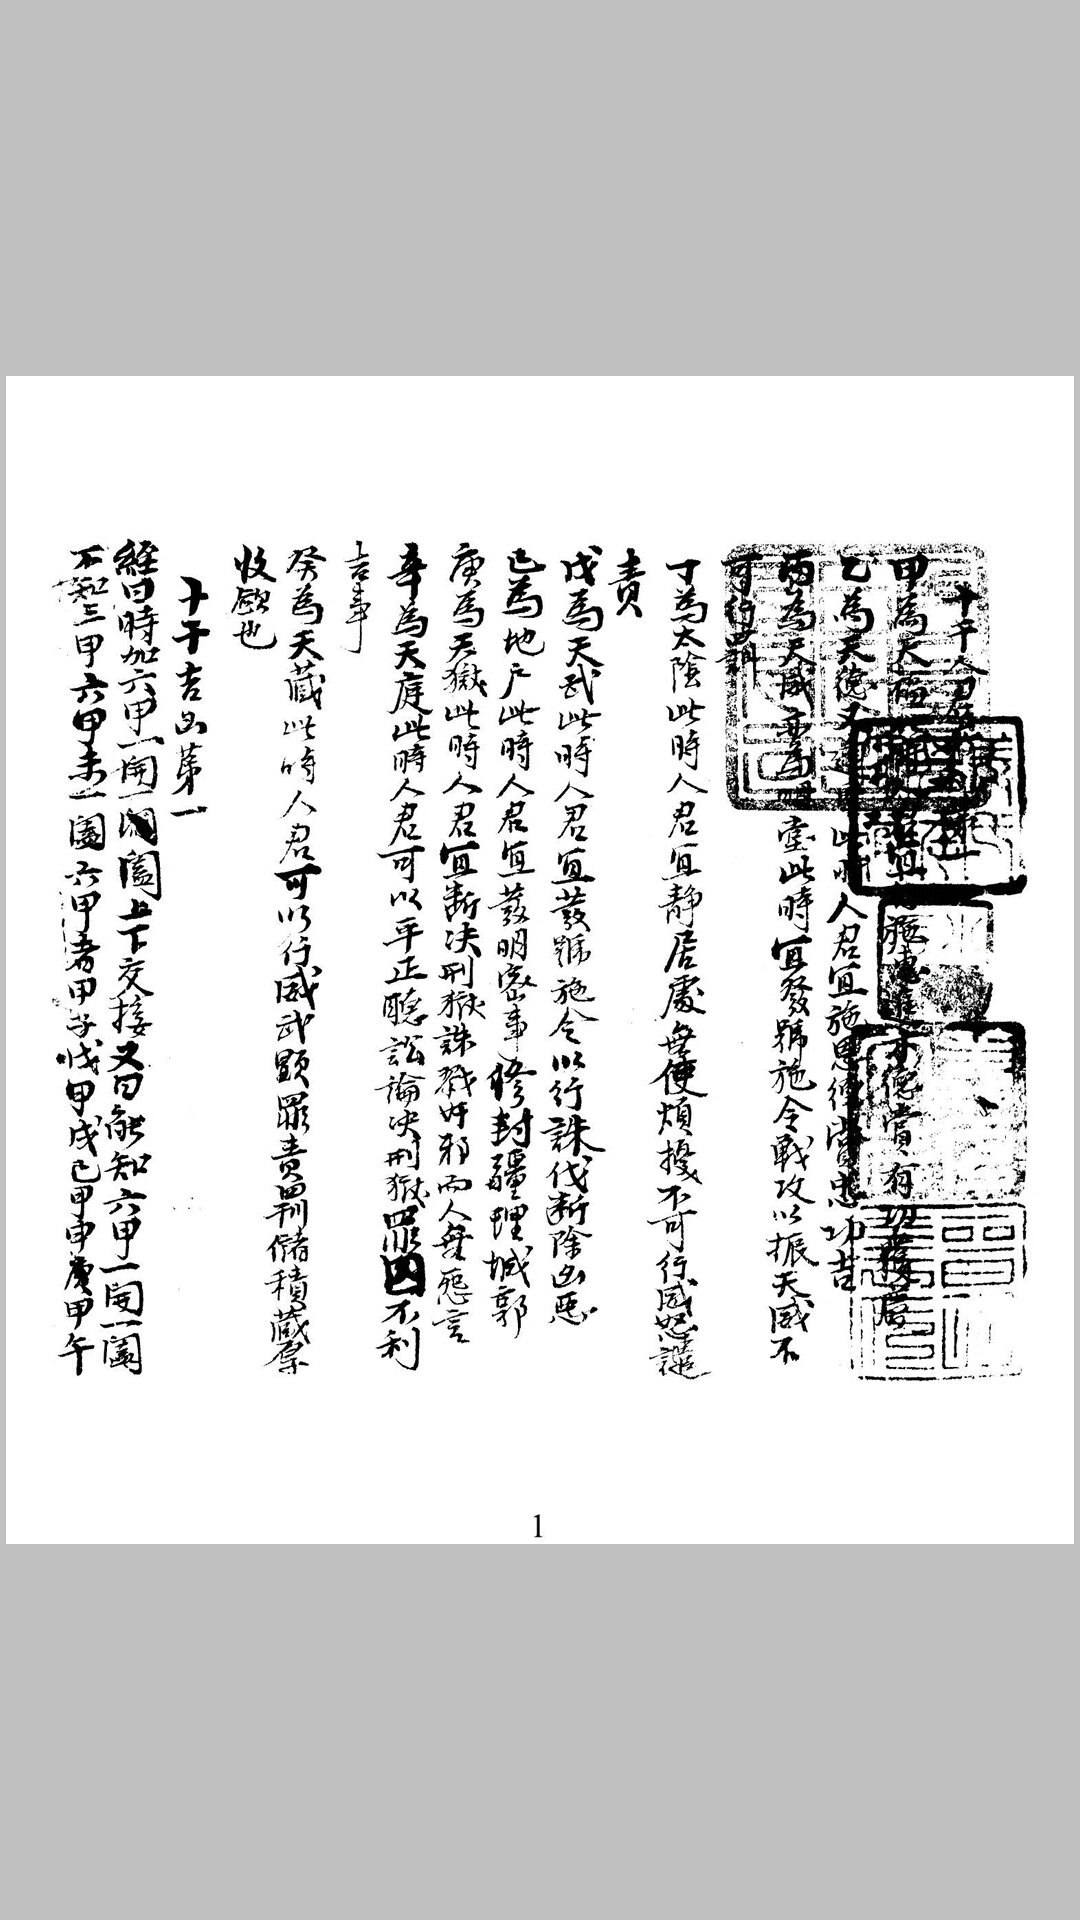 十干人君
甲為天福此時人君宜行施惠進才德賞有功
乙為天德又此時人君宜施恩德賞忠功吉
丙為天威又為明堂此時宜發號施令戰攻以振天威不
可行
丁為太陰此時人君宜靜居處無使煩擾不可行威怒譴
責
戊為天武此時人君宜發號施令以行誅伐斷除凶惡
己為地户此時人君宜發明密事修封疆理城郭
庚為天獄此時人君宜斷决刑獄誅戮奸邪而人無惡言
辛為天庭此時人君可以平正聽訟論决刑獄罪囚不利
吉事
癸為天藏此時人君可以行威武顯罪責罰儲積藏
收歛也
十干吉凶苐一
經曰時加六甲一開一闔上下交接又曰能知六甲一開一闔
不知三甲六甲未一闔六甲者甲子戊甲戌己甲申庚甲午
1